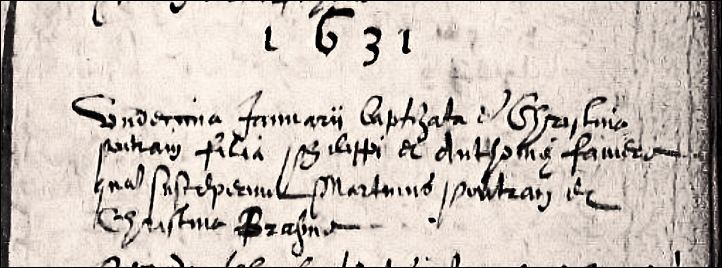 1631
Undecima Januarii baptizata est Christina
poitram filia philippi et Anthoniae faveré
qua susceperunt Martinus poitram et
Christina Brahme